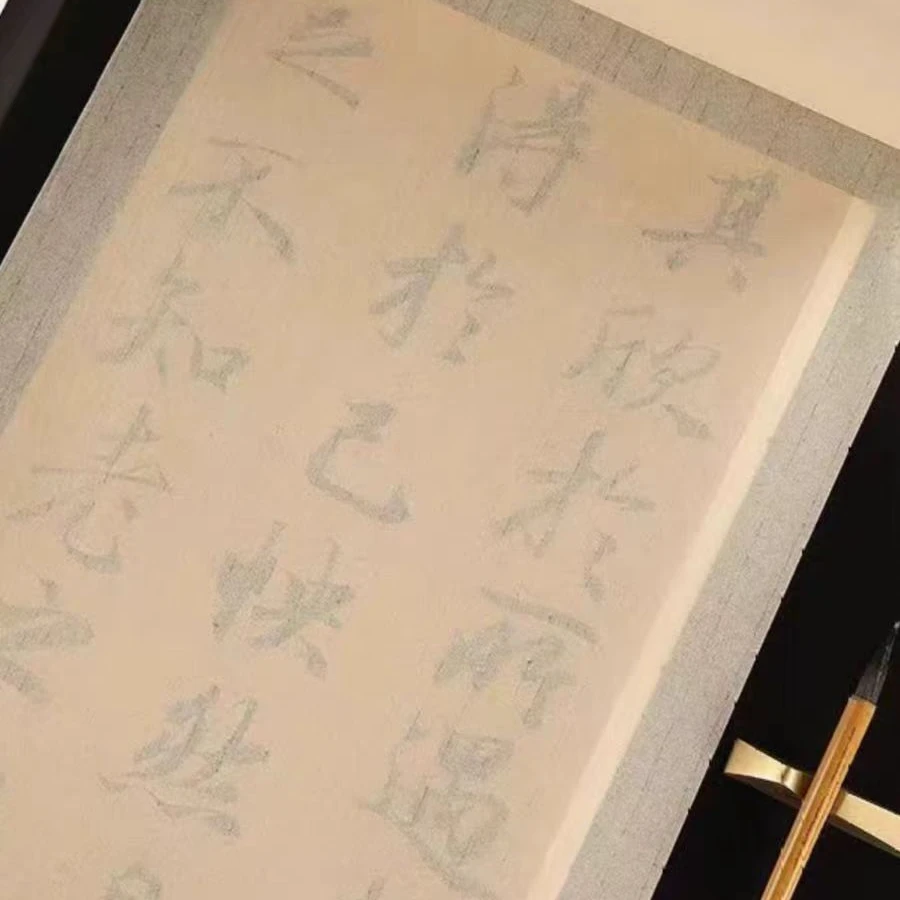 其欣於所遇
得於己怏然
足不知老之